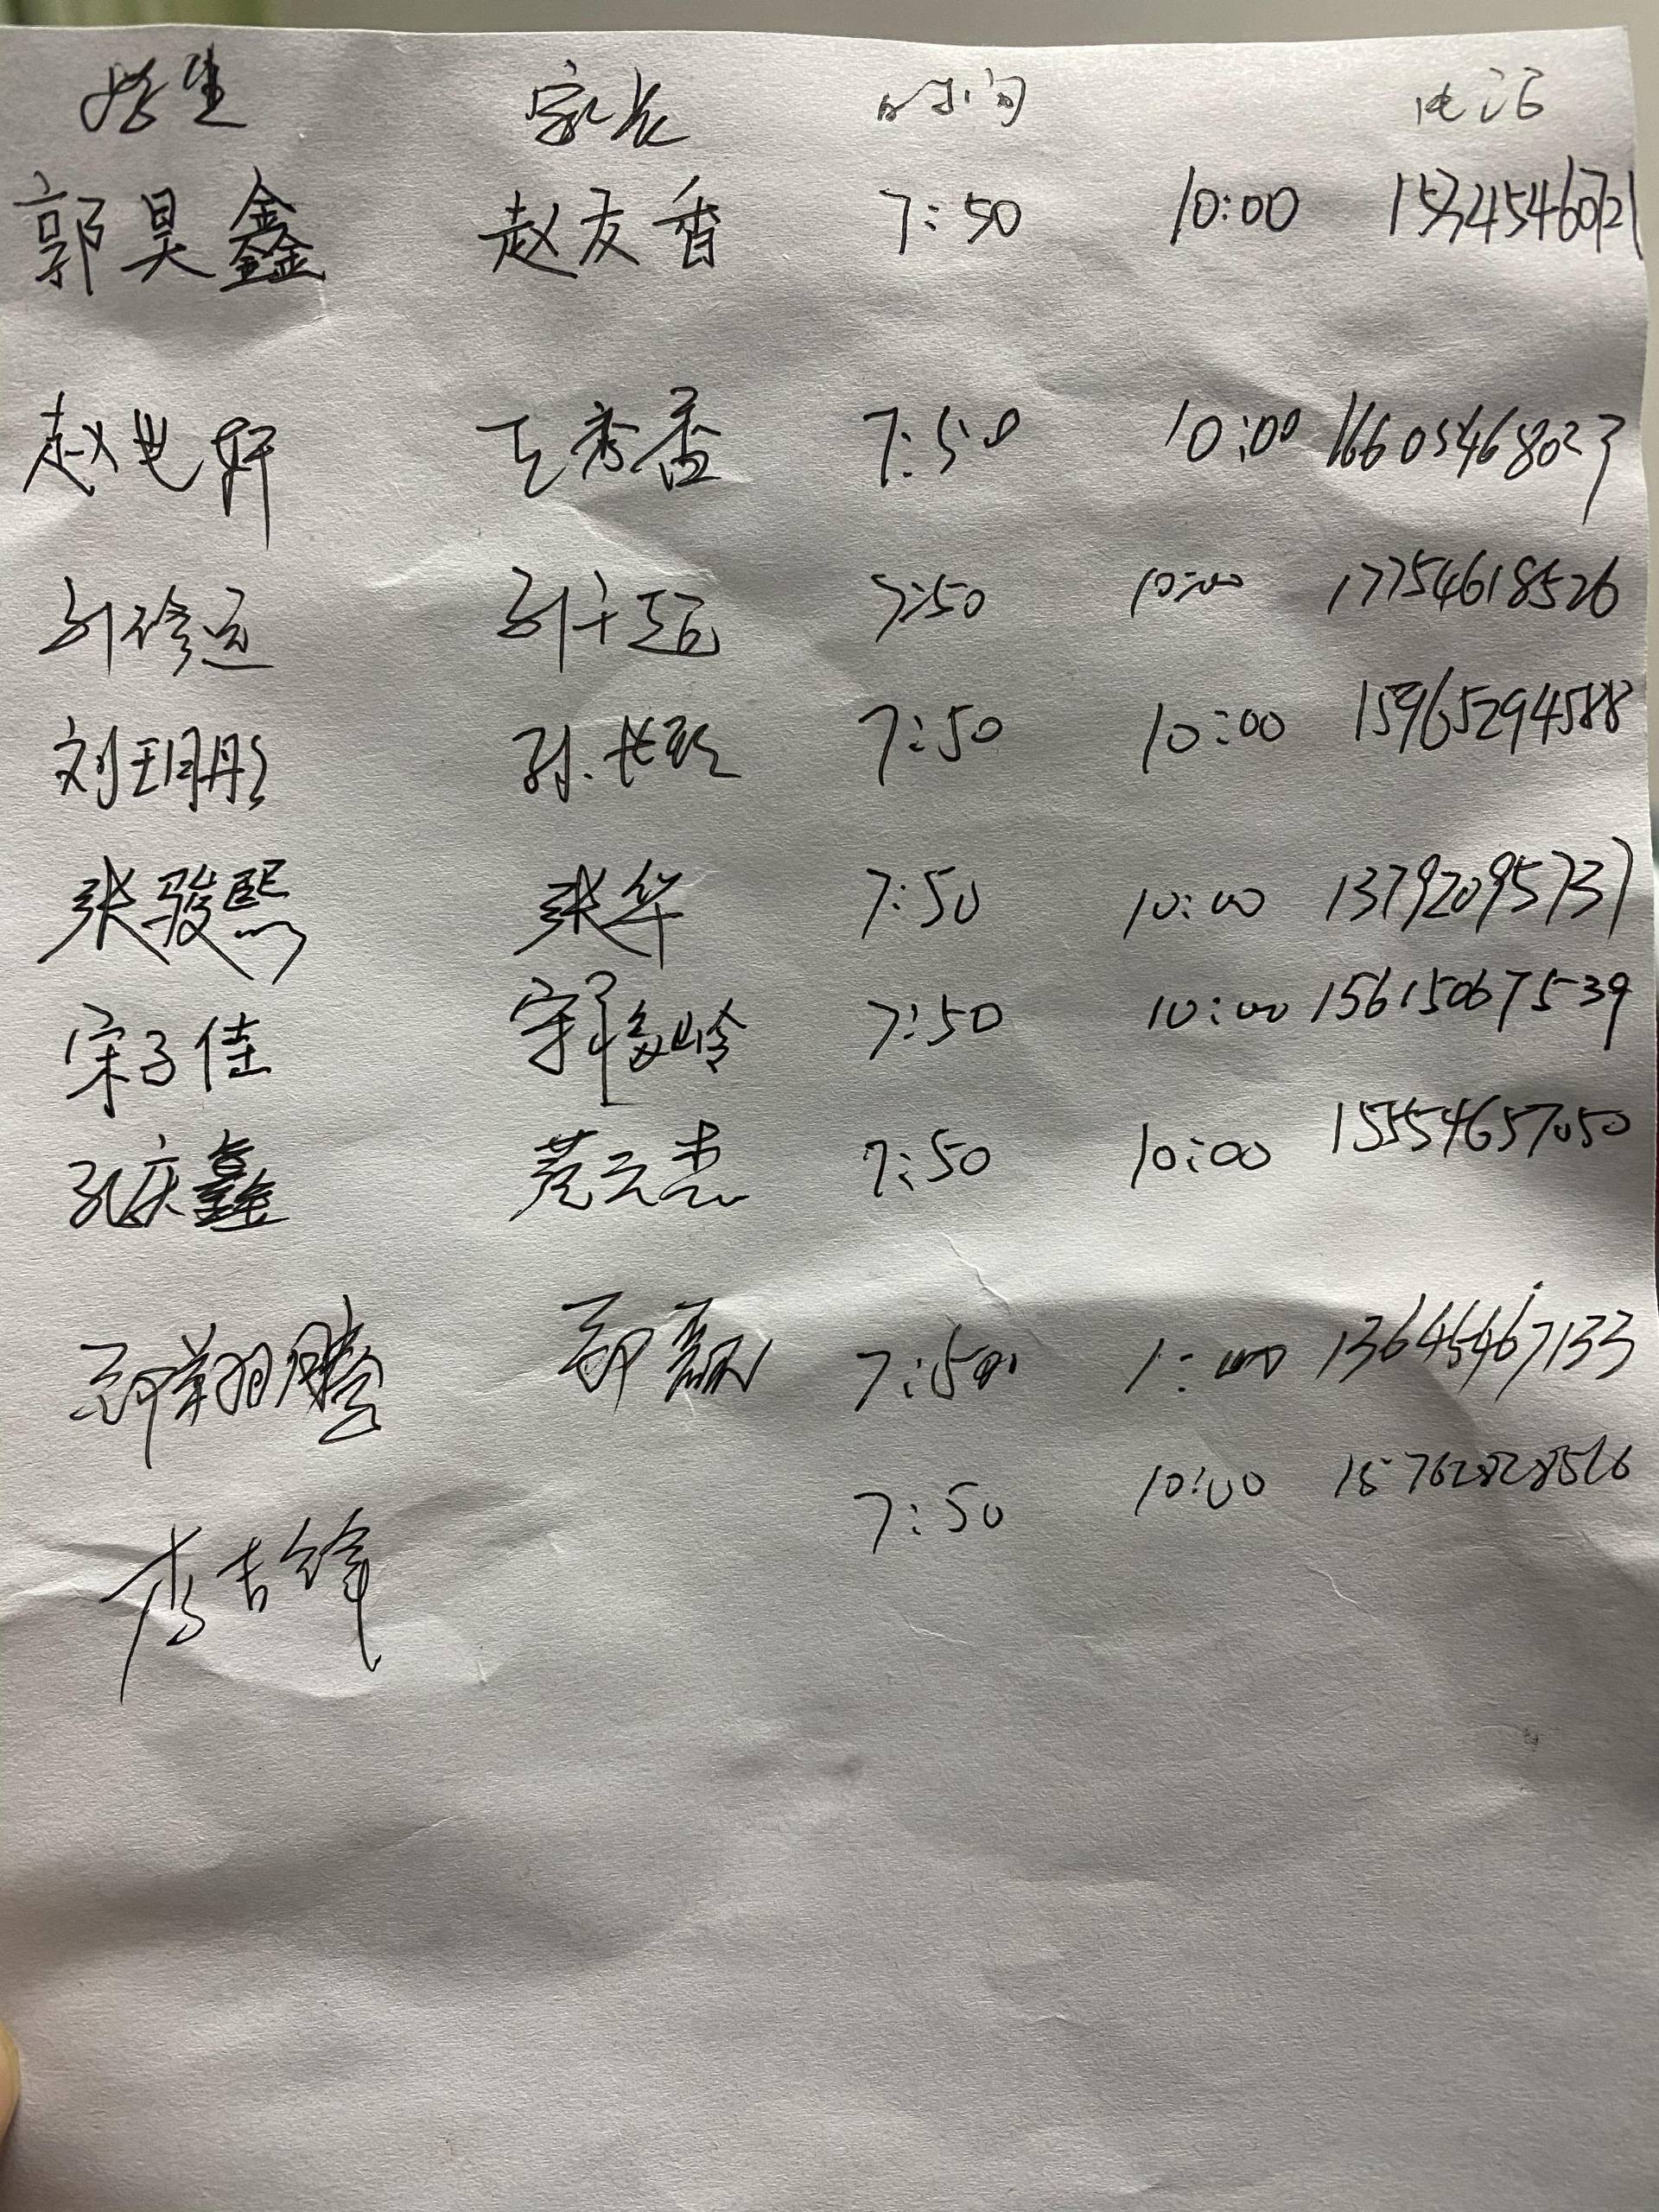 学生 家长 时间 电话
郭昊鑫 赵友香 7:50 10:00 15345460721
赵世轩 王秀香 7:50 10:00 16605468023
刘修 刘 7:50 10:00 17754618526
刘玥彤 孙 7:50 10:00 15965294588
张骏熙 张华 7:50 10:00 13792095737
宋子佳 岭 7:50 10:00 15615067539
孔庆鑫 范云杰 7:50 10:00 15554657050
翔腾 7:50 1:00 13645467133
李吉锋 7:50 10:00 15762828526